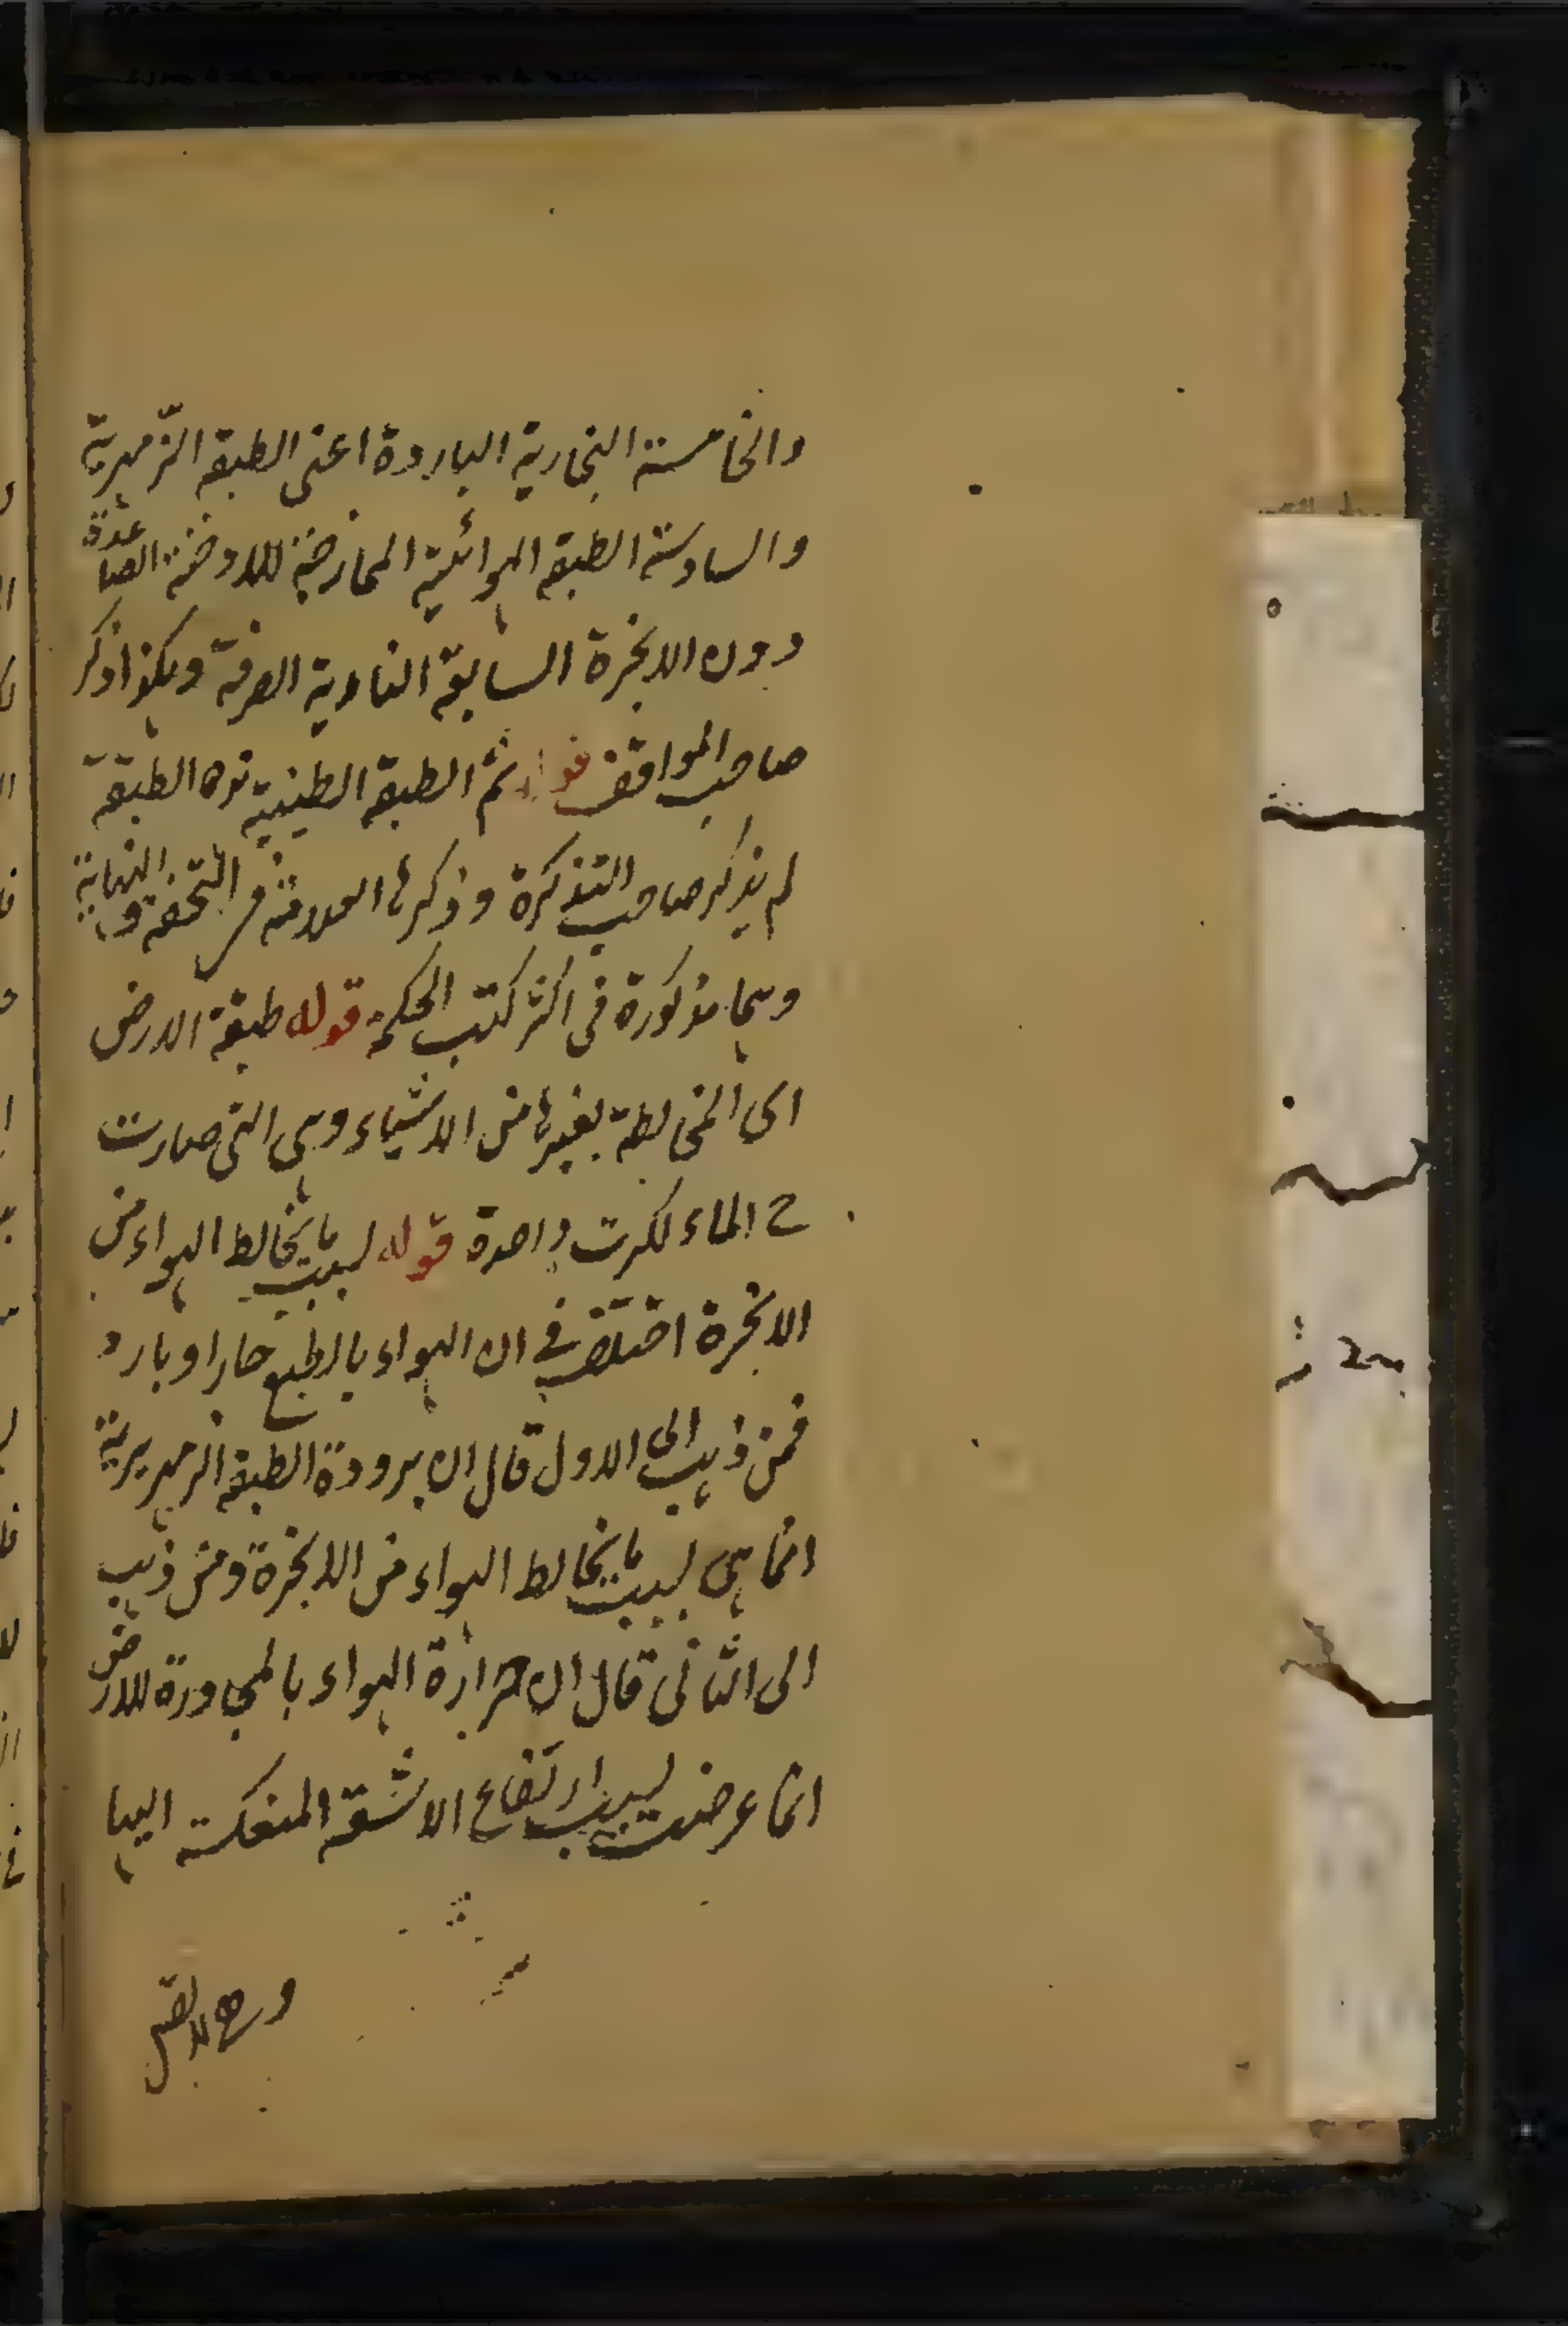 والخامسة البخارية الباردة اعنى الطبقة الزّمهريّة
والسادسة الطبقة الهوائيّة الممازجة للادخنة الصاعدة
دون الابخرة السابعة النارية الصرفة وهكذا ذكر
صاحب المواقف قوله ثم الطبقة الطينية هذه الطبقة
لم يذكر صاحب التذكرة وذكرها العلامة فى التحفة والنهاية
وهما مذكورة فى اكثر كتب الحكمة قوله طبقة الارض
اى المخالطة بغيرها من الاشياء وهى التى صارت
ح الماء لكرت واحدة قوله لسبب ما يخالط الهواء من
الابخرة اختلف فى ان الهواء بالطبع حار او بارد
فمن ذهب الى الاول قال ان برودة الطبقة الزمهريرية
انما هى لسبب ما يخالط الهواء من الابخرة ومن ذهب
الى الثانى قال ان حرارة الهواء بالمجاورة للارض
انما عرضت لسبب ارتفاع الاشعة المنعكسة اليها